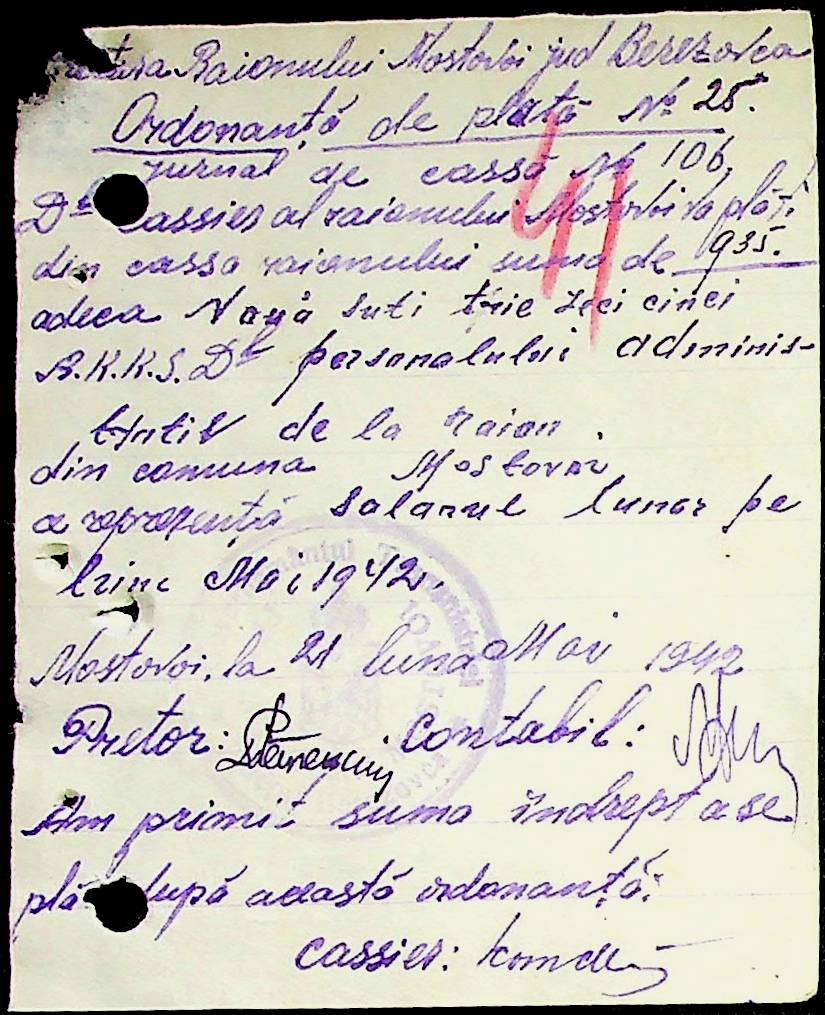 Raionului Mostovoi jud Berezovca
Ordonanță de plată № 25.
Jurnal de cassă № 106,
Dl Cassier al raionului Mostovoi va plăti
din cassa raionului suma de 935.
adeca Nouă suti trie zeci cinci
R.K.K.S. Dl personalului adminis-
trativ de la raion
din comuna Mostovoi
ce reprezentă Salariul lunar pe
Mai 1942.
41
Mostovoi, la 21 luna Mai 1942
Pretor: Contabil:
Am primit suma îndrept a se
după această ordonanță:
cassier: